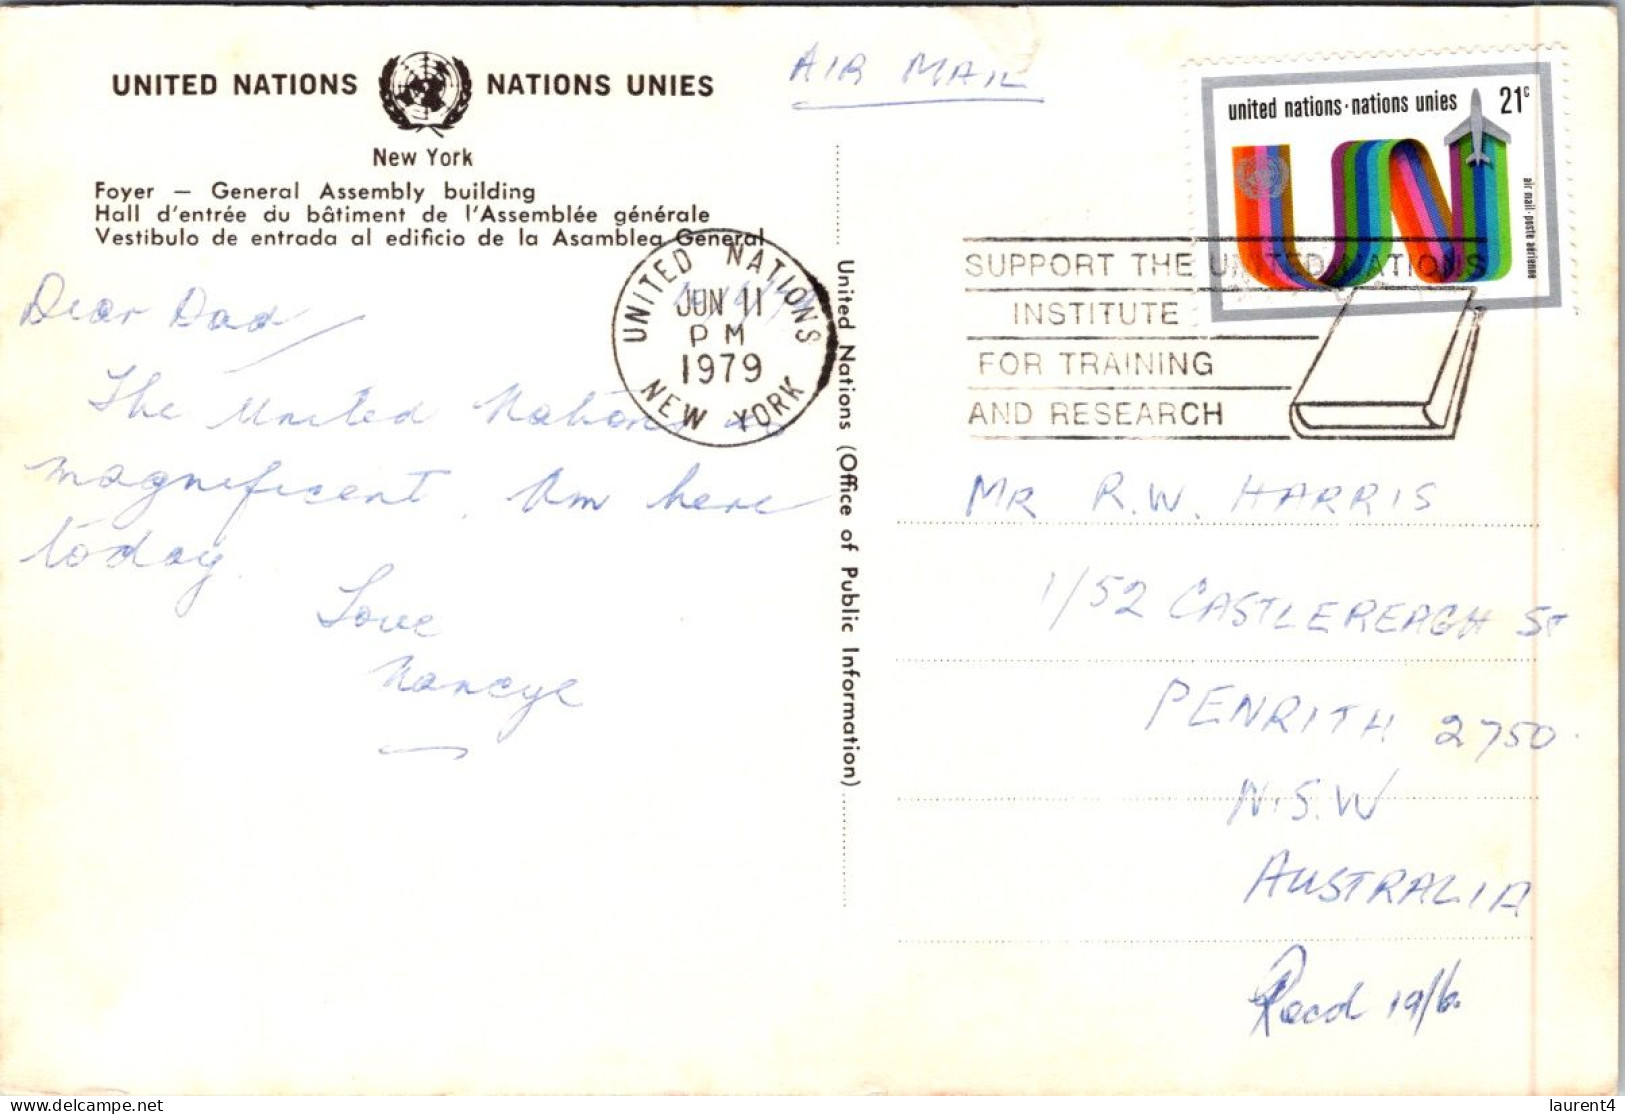 UNITED NATIONS NATIONS UNIES
New York
Foyer — General Assembly building
Hall d'entrée du bâtiment de l'Assemblée générale
Vestibulo de entrada al edificio de la Asamblea General
AIR MAIL
united nations·nations unies 21c
UN
air mail·poste aérienne
UNITED NATIONS
JUN 11
PM
1979
NEW YORK
SUPPORT THE UNITED NATIONS
INSTITUTE
FOR TRAINING
AND RESEARCH
Dear Dad
The United Nations is
magnificent. Am here
today.
Love
Nancye
United Nations (Office of Public Information)
MR R.W. HARRIS
1/52 CASTLEREAGH ST
PENRITH 2750.
N.S.W
AUSTRALIA
Recd 19/6.
laurent4